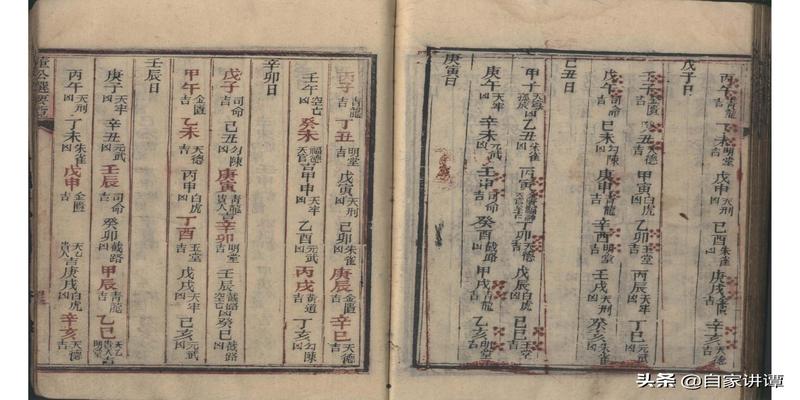 丙午吉 丁未明堂吉 戊申天刑凶 己酉朱雀凶 庚戌金匱吉 辛亥天德吉
戊子日
壬子金匱吉 癸丑天德吉 甲寅白虎凶 乙卯玉堂吉 丙辰天牢凶 丁巳元武凶
戊午司命吉 己未勾陳凶 庚申青龍吉 辛酉明堂吉 壬戌天刑凶 癸亥朱雀凶
己丑日
甲子 乙丑朱雀凶 丙寅 丁卯天德吉 戊辰白虎凶 己巳玉堂吉
庚午天牢凶 辛未元武凶 壬申司命吉 癸酉截路凶 甲戌青龍吉 乙亥明堂吉
庚寅日
丙子青龍吉 丁丑明堂吉 戊寅天刑凶 己卯朱雀凶 庚辰金匱吉 辛巳天德吉
壬午空亡凶 癸未福德天官吉 甲申天牢凶 乙酉元武凶 丙戌黄道吉 丁亥勾陳凶
辛卯日
戊子司命吉 己丑勾陳凶 庚寅青龍貴人吉 辛卯明堂吉 壬辰截路空亡凶 癸巳截路凶
甲午金匱吉 乙未天德吉 丙申白虎凶 丁酉玉堂吉 戊戌天牢凶 己亥元武凶
壬辰日
庚子天牢凶 辛丑元武凶 壬辰司命吉 癸卯截路凶 甲辰青龍吉 乙巳天乙貴人明堂吉
丙午天刑凶 丁未朱雀凶 戊申金匱吉 天乙貴人吉 庚戌白虎凶 辛亥天德吉
董公選要覽
头条 @自家讲谭